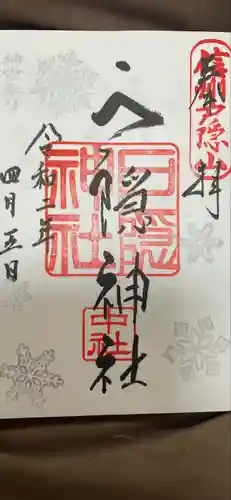 信州戸隠山
奉拝
戸隠神社
戸隠
神社
中社
令和二年
四月五日